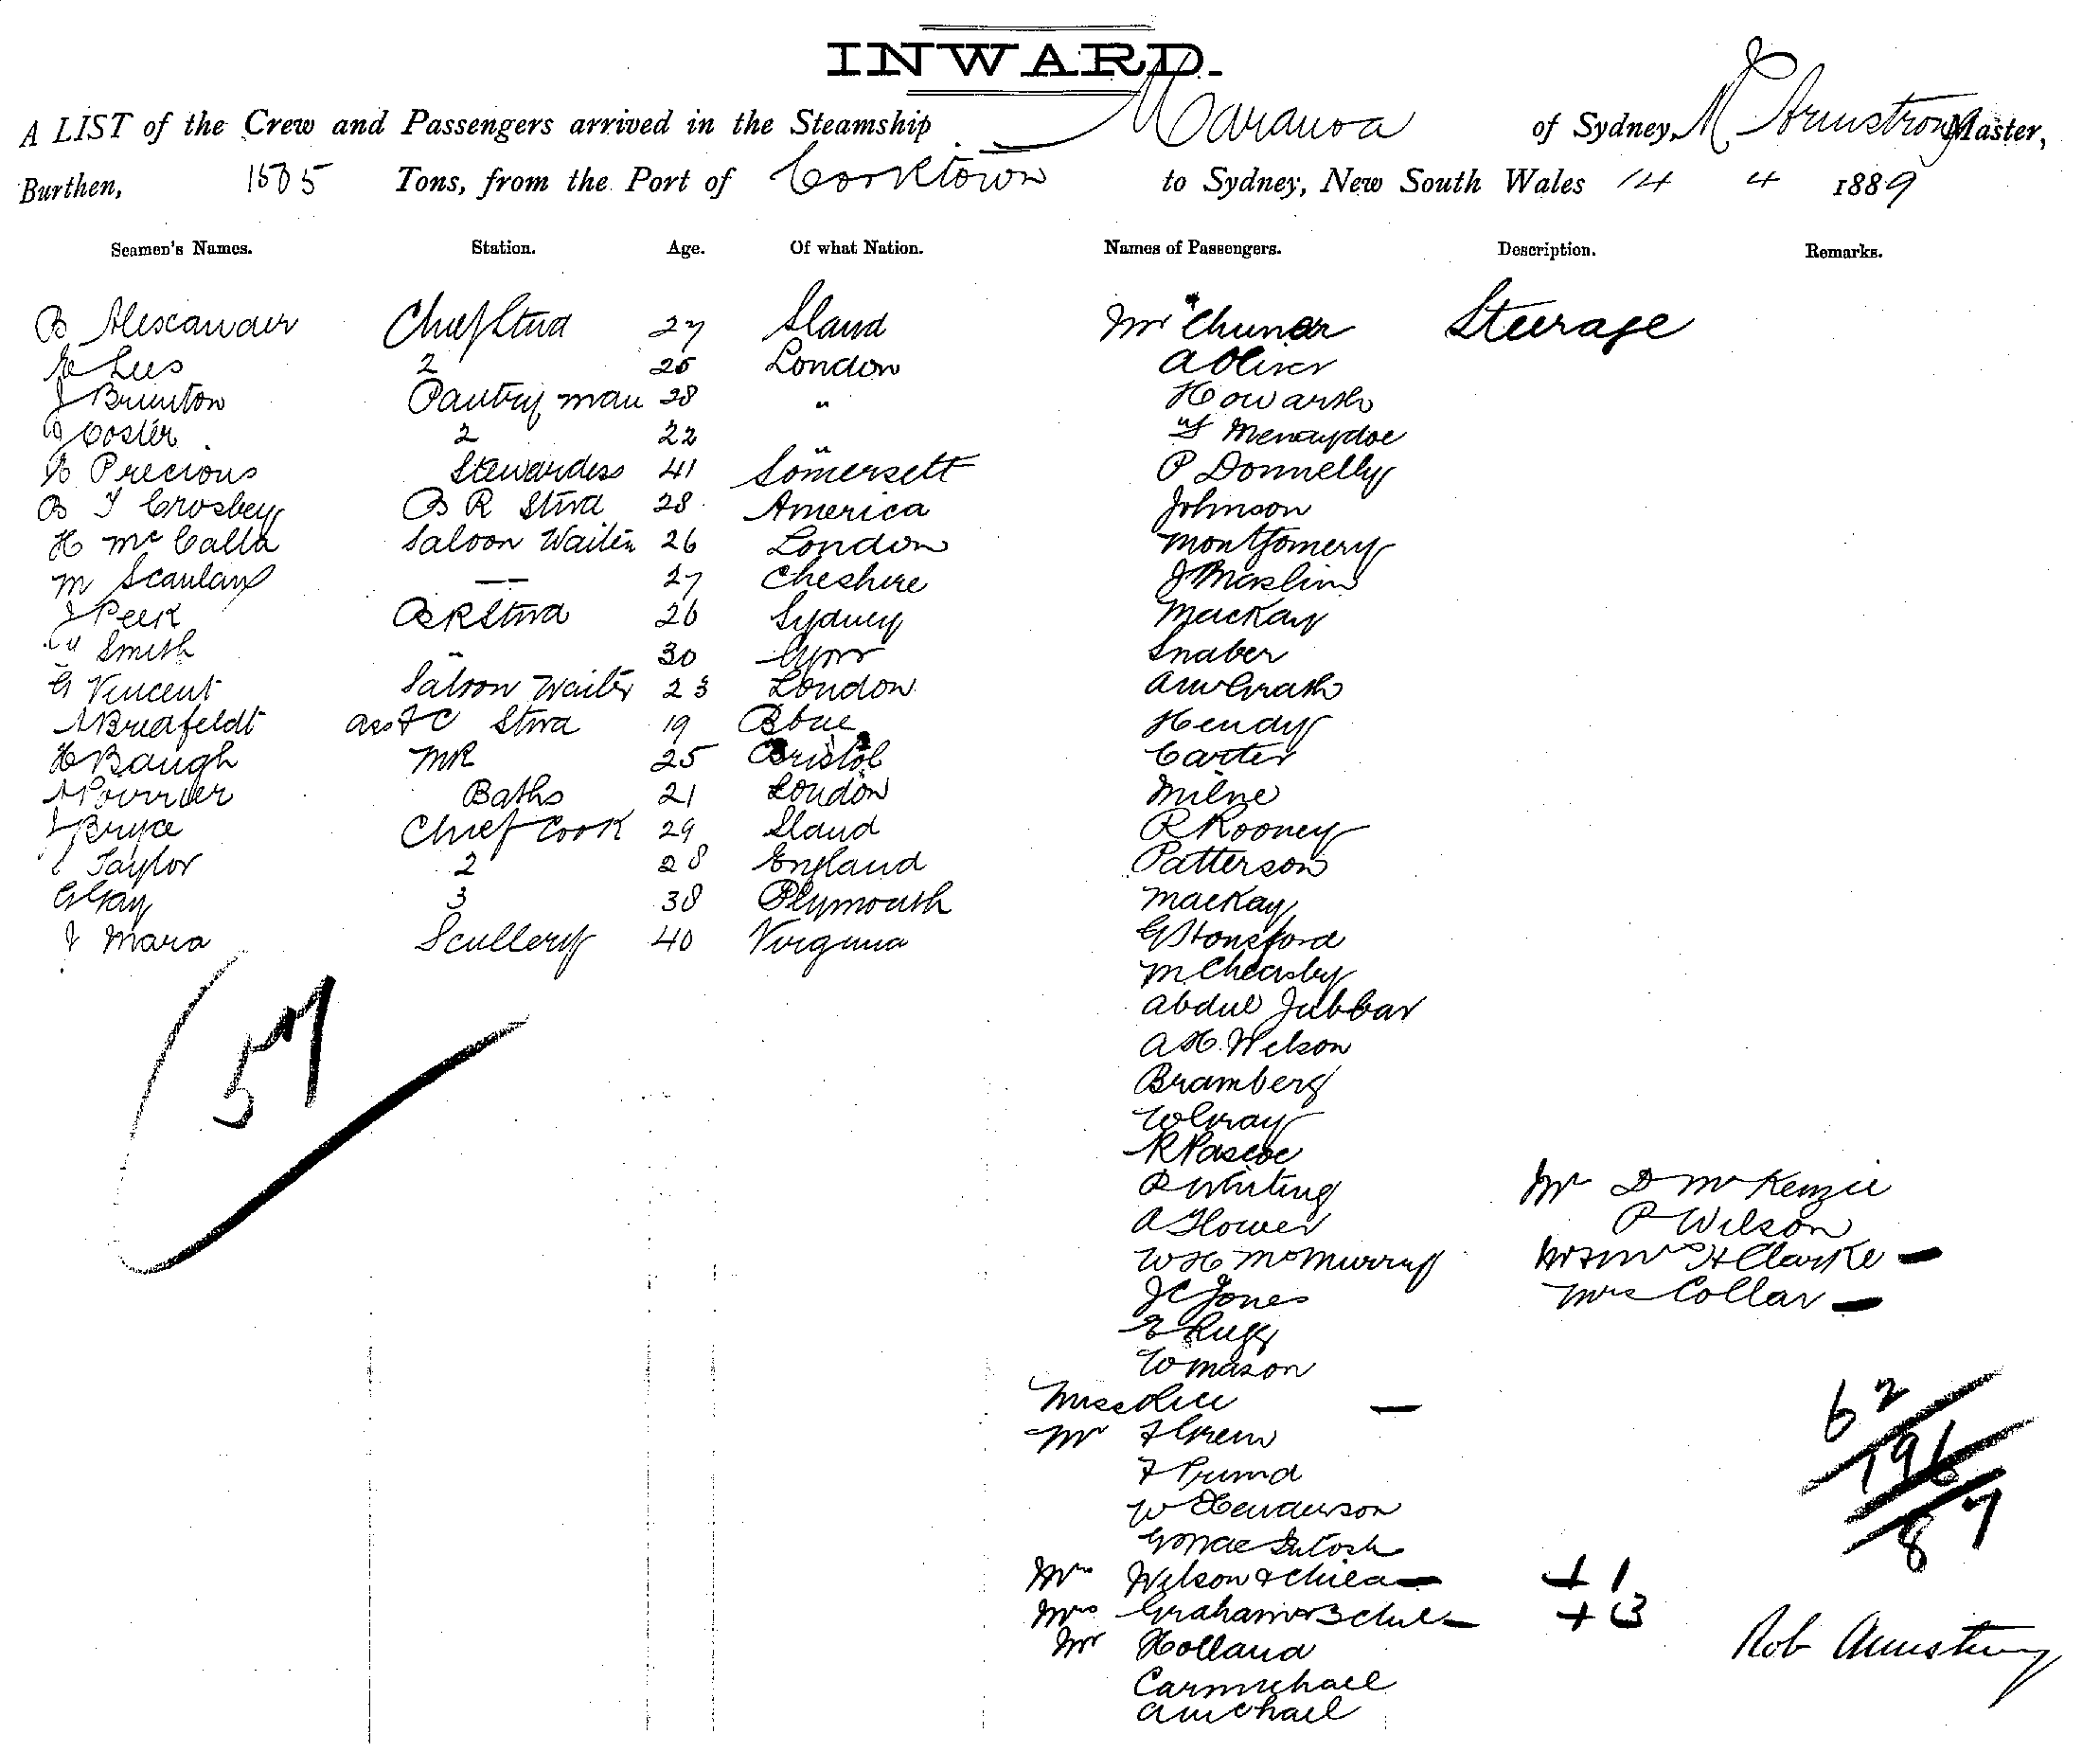 INWARD.
A LIST of the Crew and Passengers arrived in the Steamship Maranoa of Sydney, Armstrong Master,
Burthen, 1505 Tons, from the Port of Cooktown to Sydney, New South Wales 14 4 1889
Seamen's Names. Station. Age. Of what Nation. Names of Passengers. Description. Remarks.
B Alexander Chief Stwd 27 Sland Mr Steerage
Lees 2 25 London A Oliver
J Brunton Pantry man 28 " Howarth
J Coster 2 22 "
B Precious Stewardess 41 Somersett P Donnelly
B T Crosbey B R Stwd 28 America Johnson
H McCalla Saloon Waiter 26 London Montgomery
M Scanlan —— 27 Cheshire J Maslin
J Peek B R Stwd 26 Sydney MacKay
Smith " 30 Snaber
G Vincent Saloon Waiter 23 London A McGrath
A Bredfeldt Ass F C Stwd 19 Hendy
H Baugh MR 25 Bristol Carter
A Pourrier Baths 21 London Milne
J Bryce Chief Cook 29 Sland R Rooney
Taylor 2 28 England Patterson
G Gay 3 38 Plymouth MacKay
J Mara Scullery 40 Virginia G Stonsford
M Cheasby
Abdul Jubbar
A H Wilson
57
Bramberg
W Gray
R Pascoe
R Whiting Mr D McKenzie
A Flower P Wilson
W H McMurray H Clarke —
J C Jones Mrs Collar —
E Rugg
W Mason
Miss Rice —
Mr F Green
62
F
196
W Henderson
87
G MacIntosh
Mrs Wilson & Child — + 1
Mrs Graham & 3 Chil — + 3
Mr Holland Rob Armstrong
Carmichael
A Michael